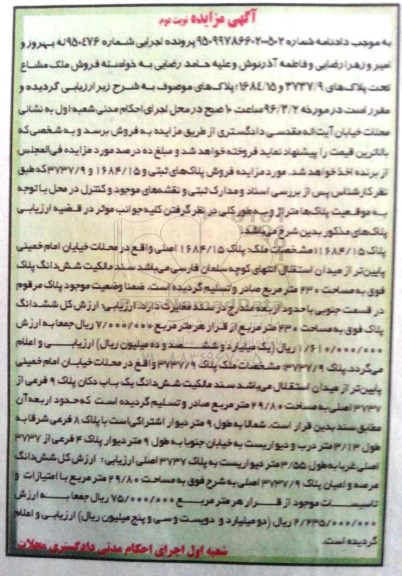 آگهی مزایده نوبت دوم
به موجب دادنامه شماره ۹۵۰۹۹۷۸۶۶۰۲۰۰۵۰۲ پرونده اجرایی شماره ۹۵۰۴۷۶ له بهروز و
امیر و زهرا رضایی و فاطمه آذرنوش و علیه حامد رضایی به خواسته فروش ملک مشاع
تحت پلاک‌های ۳۷۳۷/۹ و ۱۶۸۴/۱۵؛ پلاک‌های موصوف به شرح زیر ارزیابی گردیده و
مقرر است در مورخه ۹۶/۳/۲ ساعت ۱۰ صبح در محل اجرای احکام مدنی شعبه اول به نشانی
محلات خیابان آیت‌اله مقدسی دادگستری از طریق مزایده به فروش برسد و به شخصی که
بالاترین قیمت را پیشنهاد نماید فروخته خواهد شد و مبلغ ده درصد مورد مزایده فی‌المجلس
از برنده اخذ خواهد شد. مورد مزایده فروش پلاک‌های ثبتی ۱۶۸۴/۱۵ و ۳۷۳۷/۹ که طبق
نظر کارشناس پس از بررسی اسناد و مدارک ثبتی و نقشه‌های موجود و کنترل در محل با توجه
به موقعیت پلاک‌ها متراژ و به طور کلی در نظر گرفتن کلیه جوانب موثر در قضیه ارزیابی
پلاک‌های مذکور بدین شرح می‌باشد:
پلاک ۱۶۸۴/۱۵: مشخصات ملک: پلاک ۱۶۸۴/۱۵ اصلی واقع در محلات خیابان امام خمینی
پایین‌تر از میدان استقلال انتهای کوچه سلمان فارسی می‌باشد سند مالکیت شش‌دانگ پلاک
فوق به مساحت ۲۳۰ متر مربع صادر و تسلیم گردیده است. ضمنا وضعیت موجود پلاک مرقوم
در قسمت جنوبی با حدود اربعه مندرج در سند مغایرت دارد. ارزیابی: ارزش کل ششدانگ
پلاک فوق به مساحت ۲۳۰ متر مربع از قرار هر متر مربع ۷/۰۰۰/۰۰۰ ریال جمعا به ارزش
۱/۶۱۰/۰۰۰/۰۰۰ ریال (یک میلیارد و ششصد و ده میلیون ریال) ارزیابی و اعلام
می‌گردد. پلاک ۳۷۳۷/۹: مشخصات ملک پلاک ۳۷۳۷/۹ واقع در محلات خیابان امام خمینی
پایین‌تر از میدان استقلال می‌باشد سند مالکیت شش‌دانگ یک باب دکان پلاک ۹ فرعی از
۳۷۳۷ اصلی به مساحت ۲۹/۸۰ متر مربع صادر و تسلیم گردیده است که حدود اربعه آن
مطابق سند بدین قرار است. شمالا به طول ۹ متر دیوار اشتراکی است با پلاک ۸ فرعی شرقا به
طول ۳/۱۳ متر درب و دیواریست به خیابان جنوبا به طول ۹ متر دیوار پلاک ۴ فرعی از ۳۷۳۷
اصلی غربا به طول ۳/۵۵ متر دیواریست به پلاک ۳۷۳۷ اصلی ارزیابی: ارزش کل شش‌دانگ
عرصه و اعیان پلاک ۳۷۳۷/۹ اصلی به شرح فوق به مساحت ۲۹/۸۰ متر مربع با امتیازات و
تاسیسات موجود از قرار هر متر مربع ۷۵/۰۰۰/۰۰۰ ریال جمعا به ارزش
۲/۲۳۵/۰۰۰/۰۰۰ ریال (دو میلیارد و دویست و سی و پنج میلیون ریال) ارزیابی و اعلام
گردیده است.
شعبه اول اجرای احکام مدنی دادگستری محلات